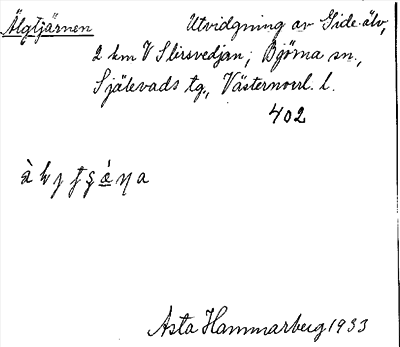 Älgtjärnen Utvidgning av Gide-älv,
2 km V Slirsvedjan; Björna sn.,
Själevads tg., Västernorrl. l.
402
Asta Hammarberg 1933